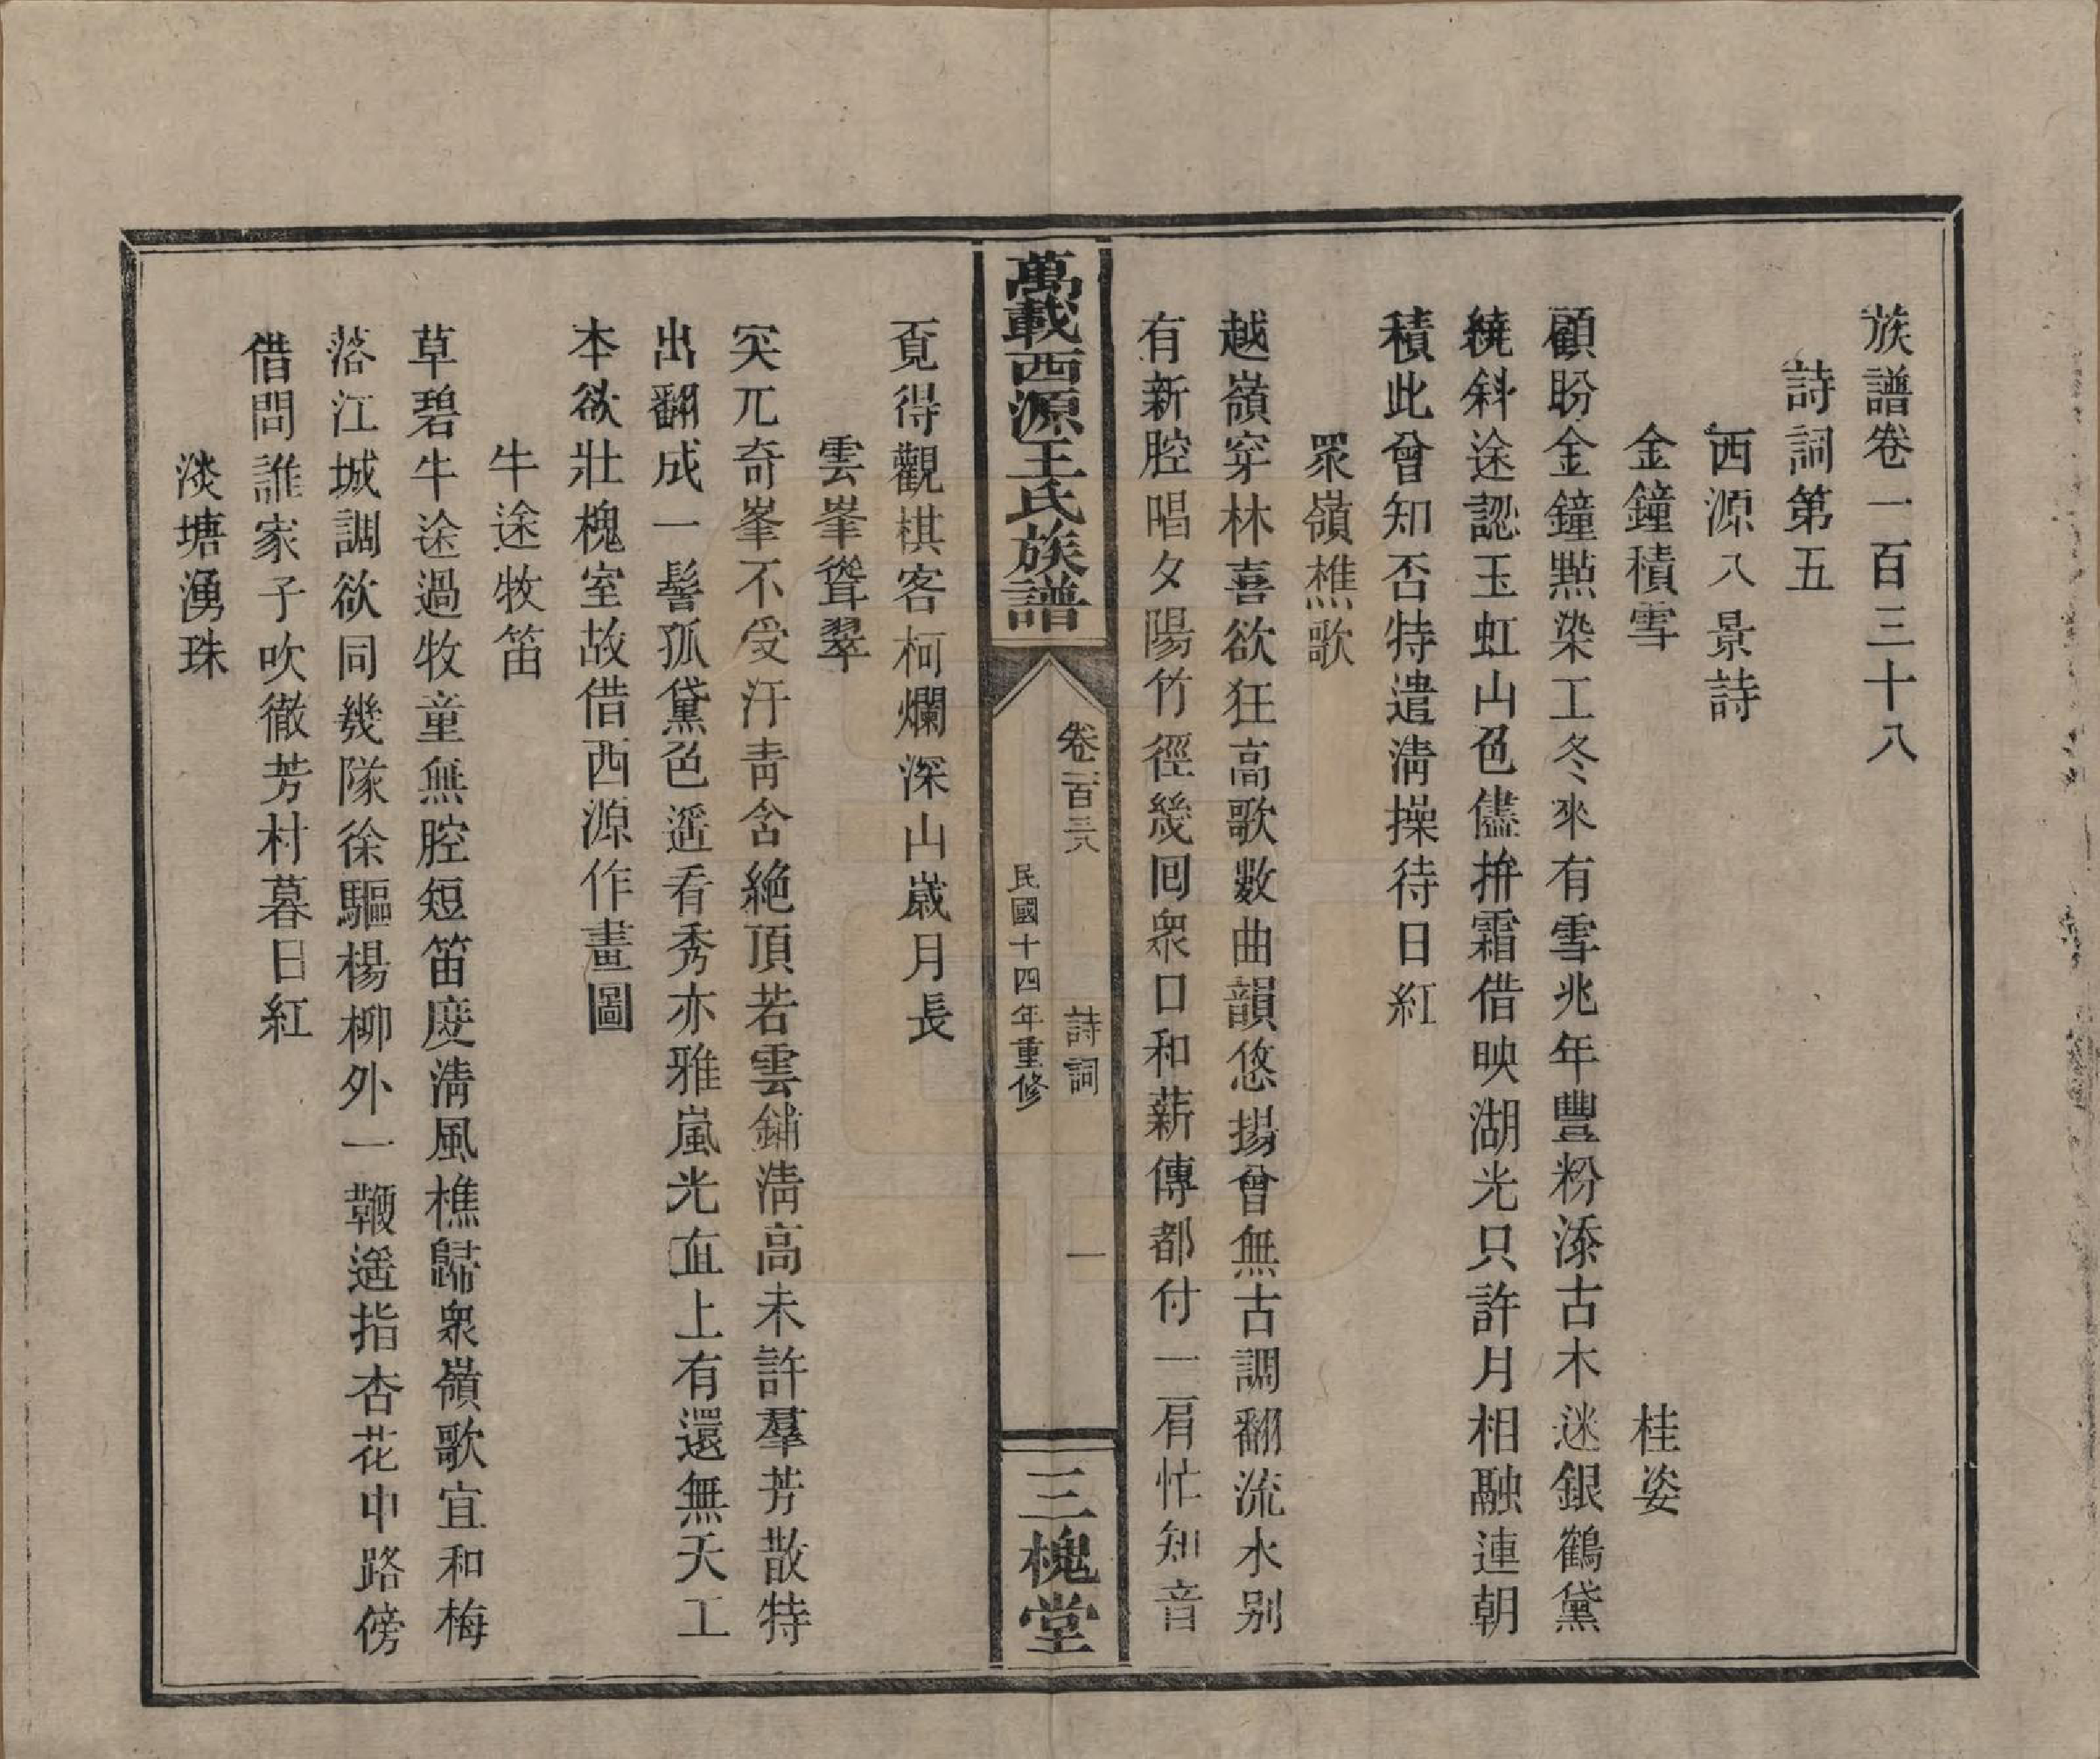 族譜卷一百三十八
詩詞第五
西源八景詩
金鐘積雪　桂姿
顧盼金鐘點染工冬來有雪兆年豐粉添古木迷銀鶴黛
繞斜途認玉虹山色儘拚霜借映湖光只許月相融連朝
積此曾知否特遣淸操待日紅
眾嶺樵歌
越嶺穿林喜欲狂高歌數曲韻悠揚曾無古調翻流水别
有新腔唱夕陽竹徑幾回衆口和薪傳都付一肩忙知音
萬載西源王氏族譜
卷一百三八
詩詞
一
民國十四年重修
三槐堂
覔得觀棋客柯爛深山歲月長
雲峯聳翠
突兀奇峯不受汙靑含絶頂若雲鋪淸高未許羣芳散特
出翻成一髻孤黛色遥看秀亦雅嵐光直上有還無天工
本欲壯槐室故借西源作畫圖
牛途牧笛
草碧牛途過牧童無腔短笛度淸風樵歸衆嶺歌宜和梅
落江城調欲同幾隊徐驅楊柳外一鞭遥指杏花中路傍
借問誰家子吹徹芳村暮日紅
淡塘湧珠